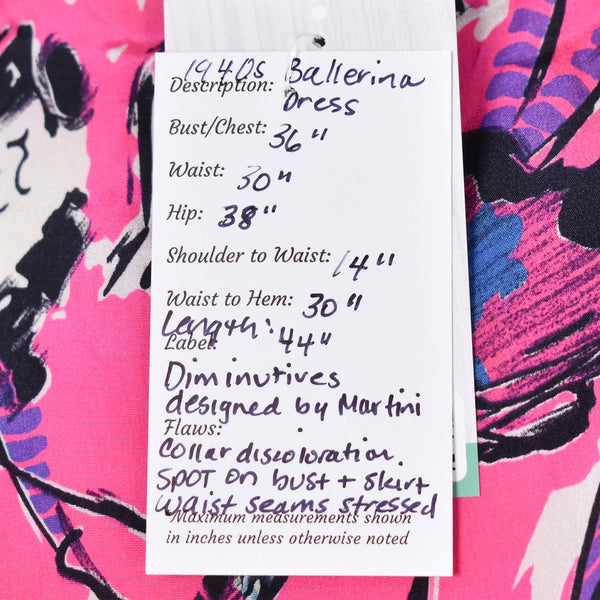 Description: 1940s Ballerina
Dress
Bust/Chest: 36"
Waist: 30"
Hip: 38"
Shoulder to Waist: 14"
Waist to Hem: 30"
Length: 44"
Label:
Diminutives
designed by Martini
Flaws:
Collar discoloration.
spot on bust + skirt
waist seams stressed
*Maximum measurements shown
in inches unless otherwise noted